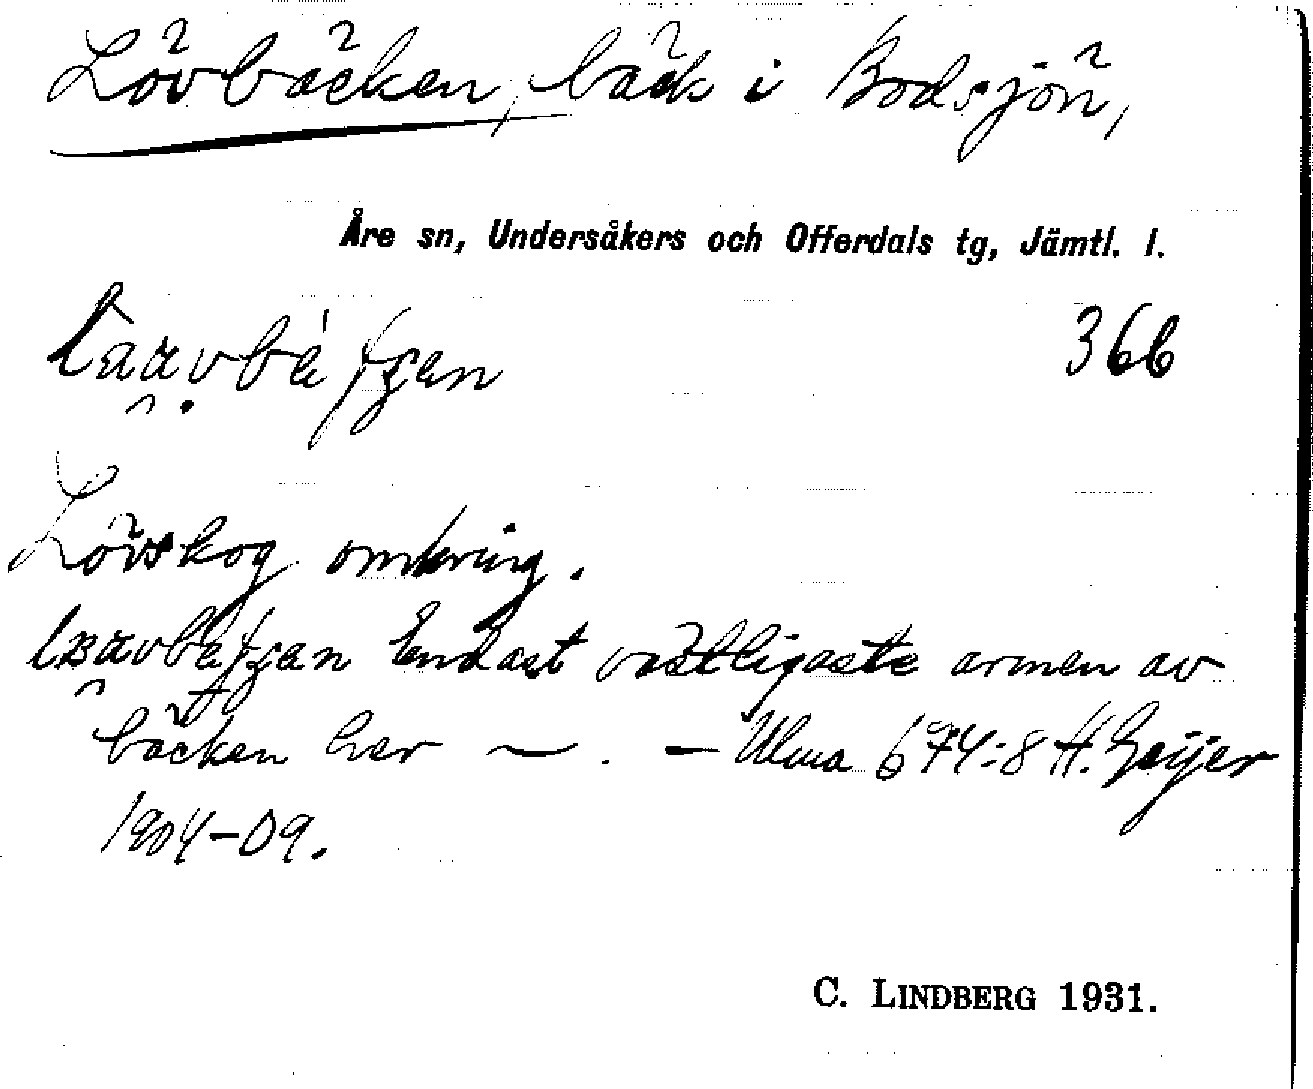 Lövbäcken, bäck i Bodsjön,
Åre sn, Undersåkers och Offerdals tg, Jämtl. l.
366
Lövskog omkring.
Endast västligaste armen av
bäcken her ~ . – Ulma 674:8 H. Geijer
1904–09.
C. LINDBERG 1931.